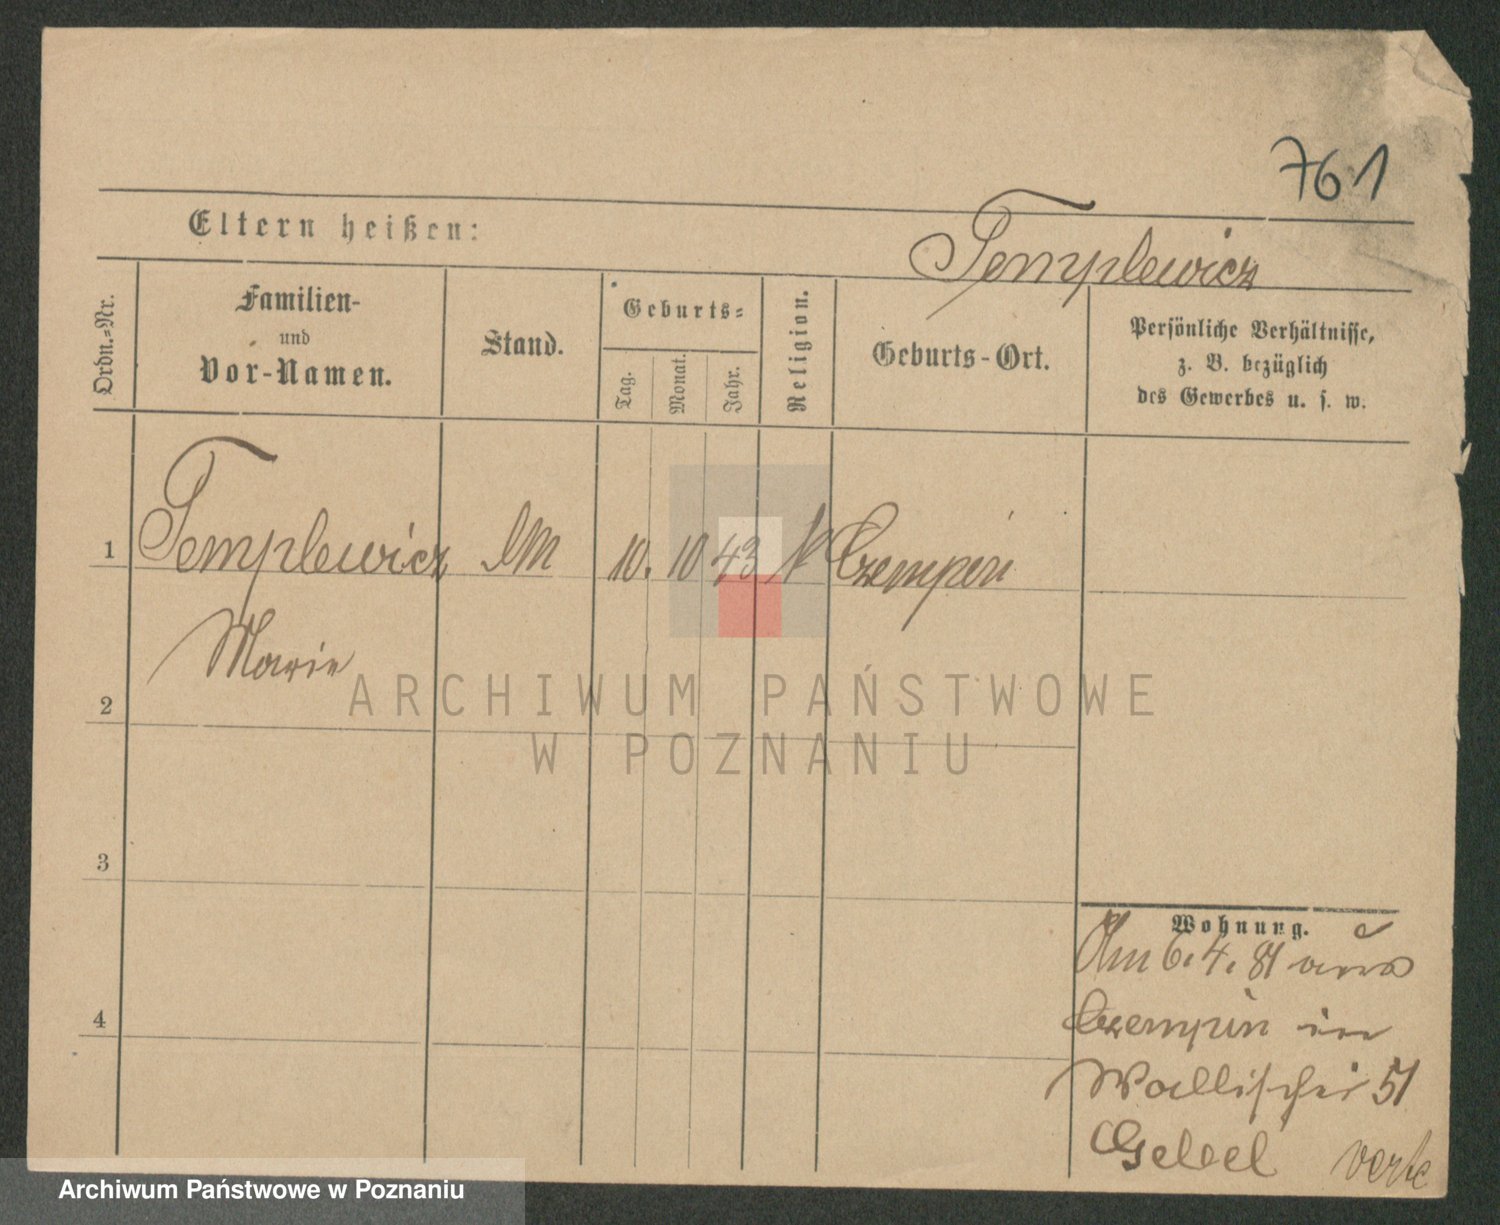 761
Eltern heißen:
Templewicz
Ordn.-Nr.
Familien-
und
Vor-Namen.
Stand.
Geburts-
Tag.
Monat.
Jahr.
Religion.
Geburts-Ort.
Persönliche Verhältnisse,
z. B. bezüglich
des Gewerbes u. s. w.
1 Templewicz 10. 10 43 Czempin
Marie
2
3
4
Wohnung.
Am 6. 4. 81 aus
Czempin in
Wallischei 51
verte
ARCHIWUM PAŃSTWOWE
W POZNANIU
Archiwum Państwowe w Poznaniu